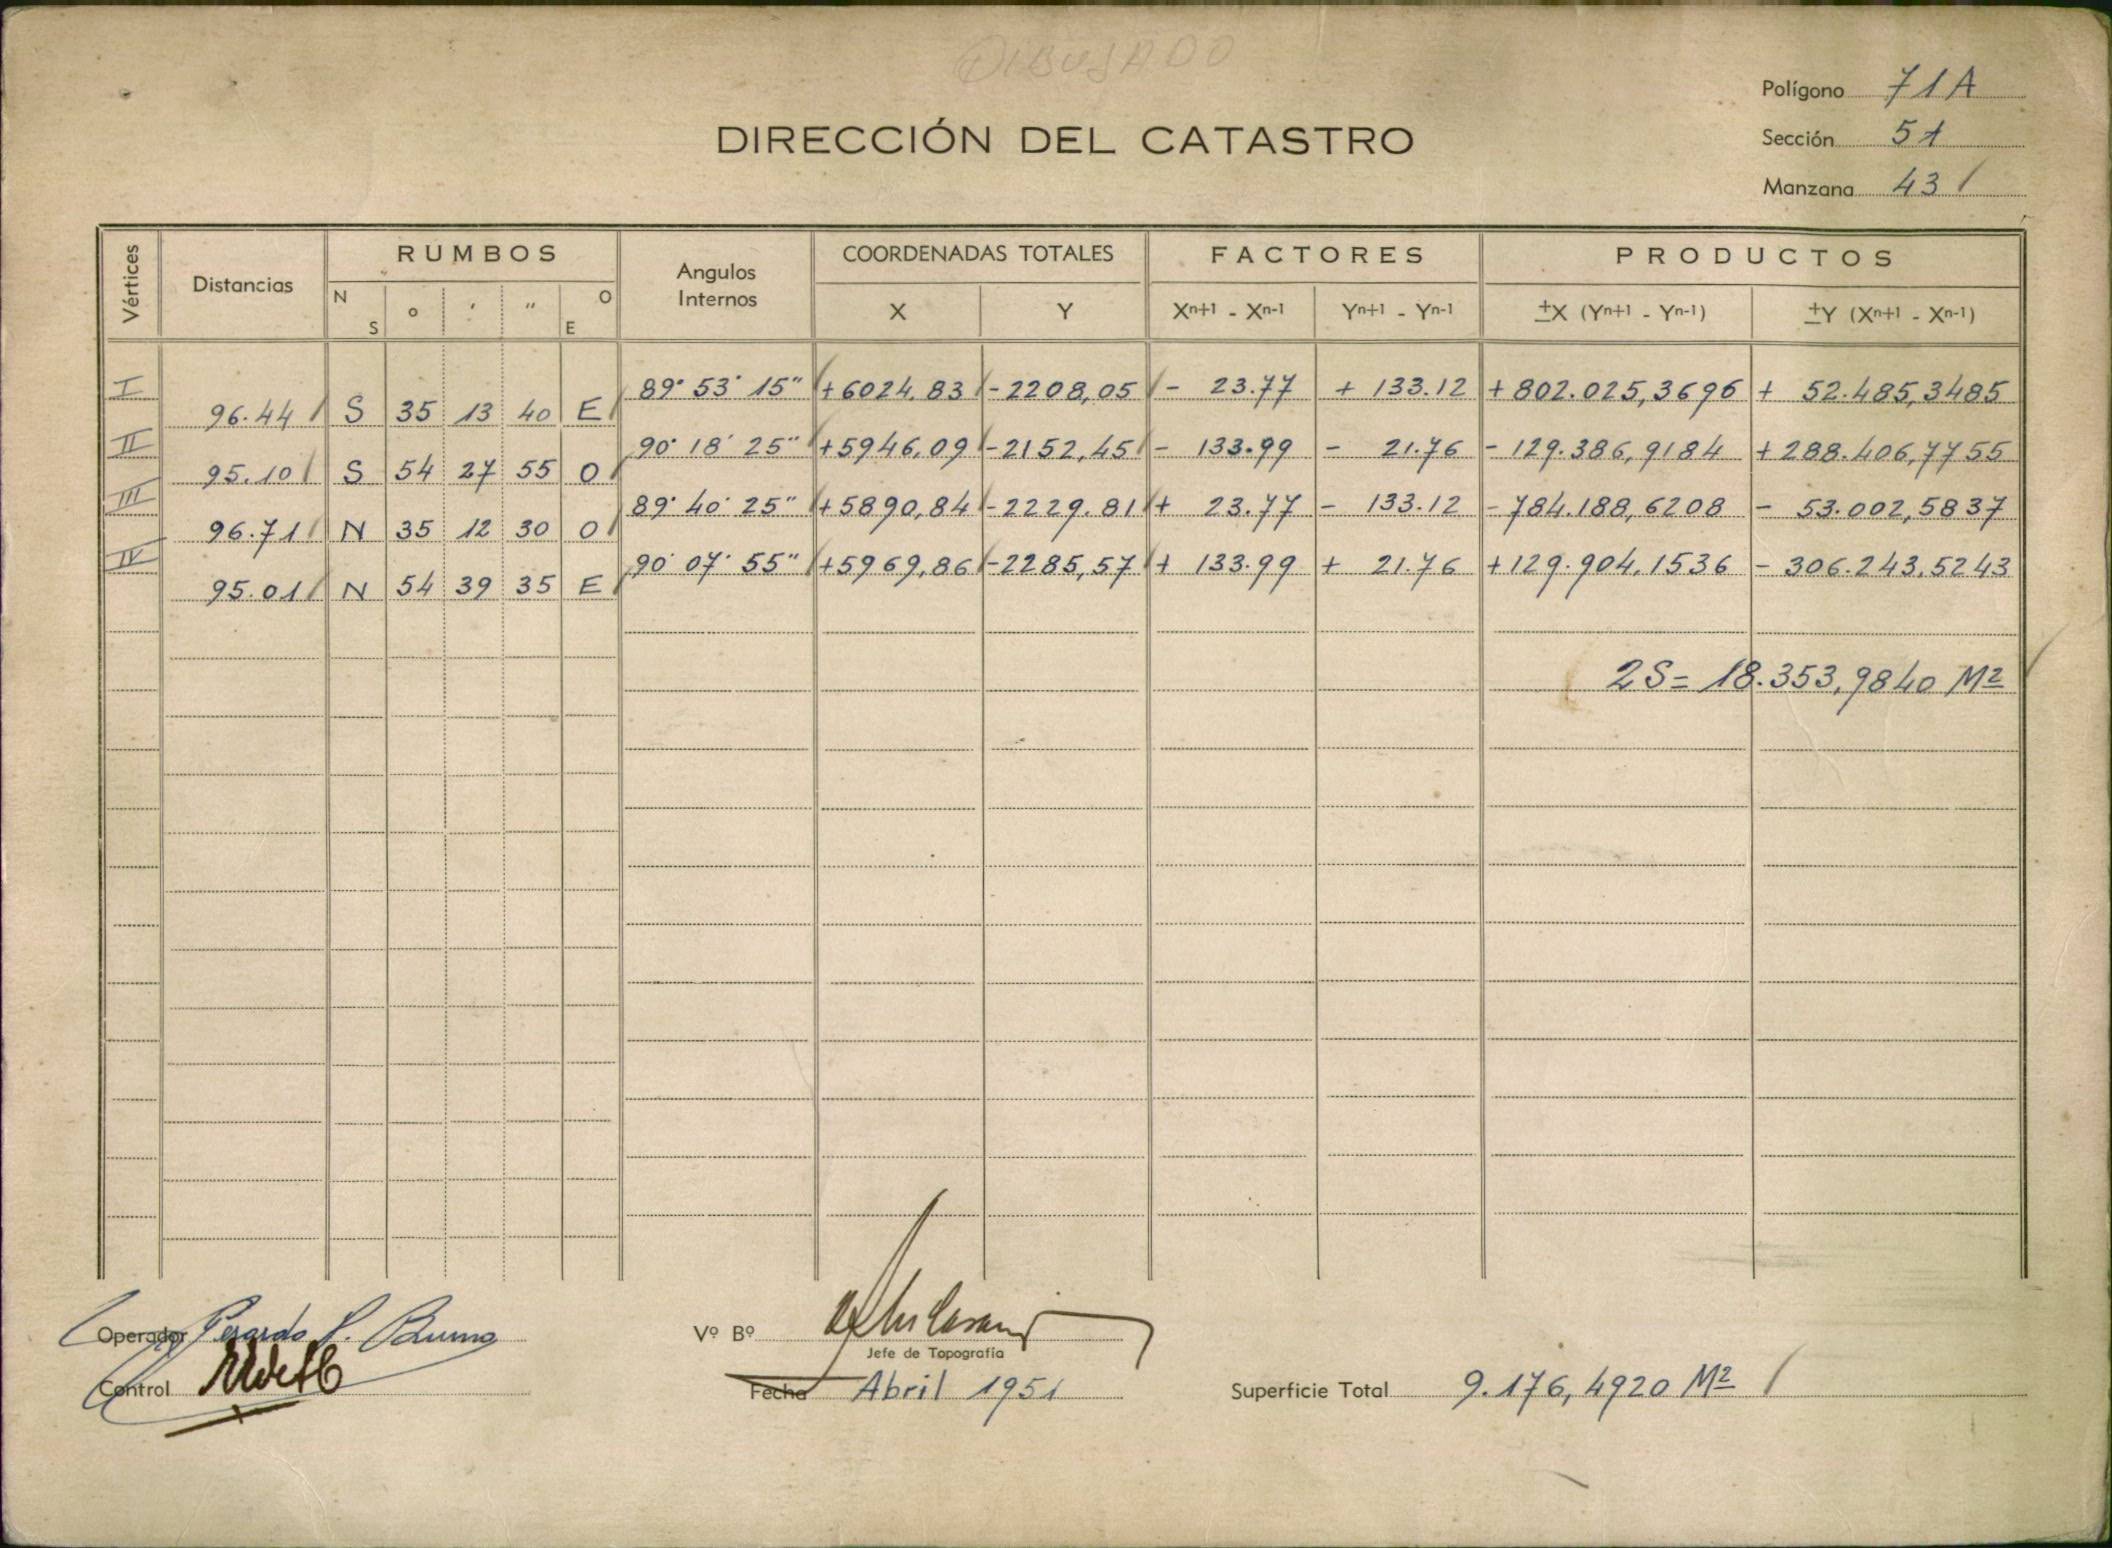 DIBUJADO
Polígono 71A
DIRECCIÓN DEL CATASTRO
Sección 51
Manzana 43
Vértices Distancias RUMBOS Angulos Internos COORDENADAS TOTALES FACTORES PRODUCTOS
N S ° ' " O E X Y Xn+1 - Xn-1 Yn+1 - Yn-1 ±X (Yn+1 - Yn-1) ±Y (Xn+1 - Xn-1)
I 89° 53' 15" +6024,83 -2208,05 - 23.77 + 133.12 +802.025,3696 + 52.485,3485
96.44 S 35 13 40 E
II 90° 18' 25" +5946,09 -2152,45 - 133.99 - 21.76 - 129.386,9184 +288.406,7755
95.10 S 54 27 55 O
III 89° 40' 25" +5890,84 -2229.81 + 23.77 - 133.12 -784.188,6208 - 53.002,5837
96.71 N 35 12 30 O
IV 90° 07' 55" +5969,86 -2285,57 + 133.99 + 21.76 +129.904,1536 - 306.243,5243
95.01 N 54 39 35 E
2S= 18.353,9840 M2
Operador
Vº Bº
Jefe de Topografía
Control
Fecha Abril 1951
Superficie Total 9.176,4920 M2